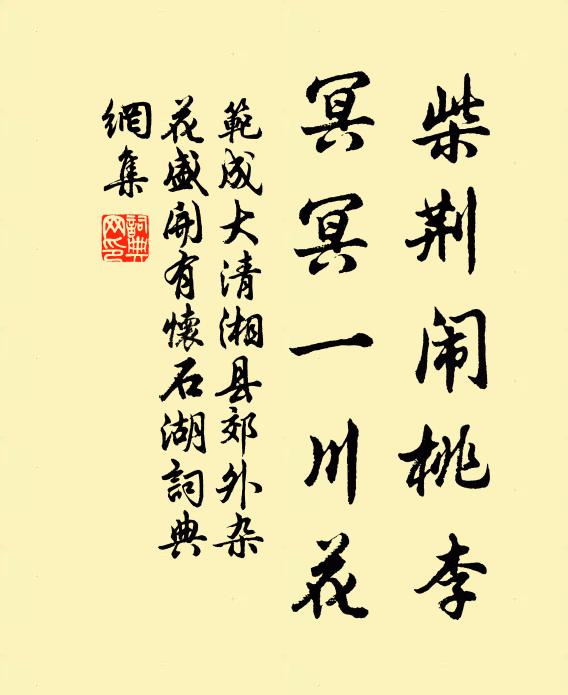 柴荆闹桃李
冥冥一川花
範成大清湘县郊外杂
花盛開有懷石湖詞典
網集
詞典网印